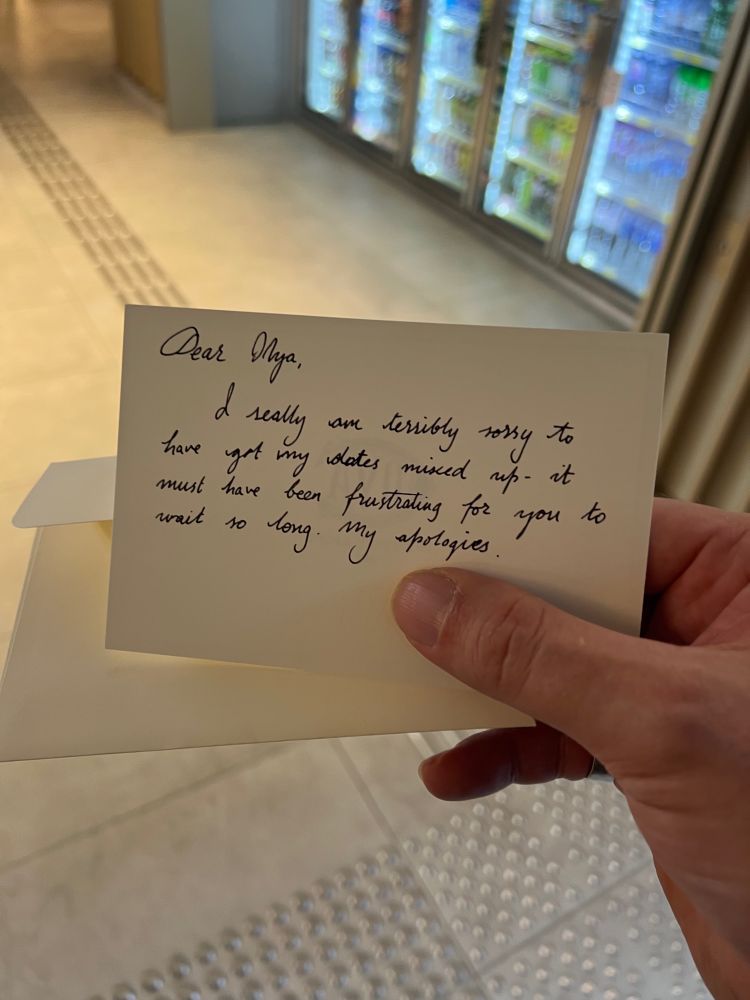 Dear Mya,
I really am terribly sorry to
have got my dates mixed up - it
must have been frustrating for you to
wait so long. My apologies.